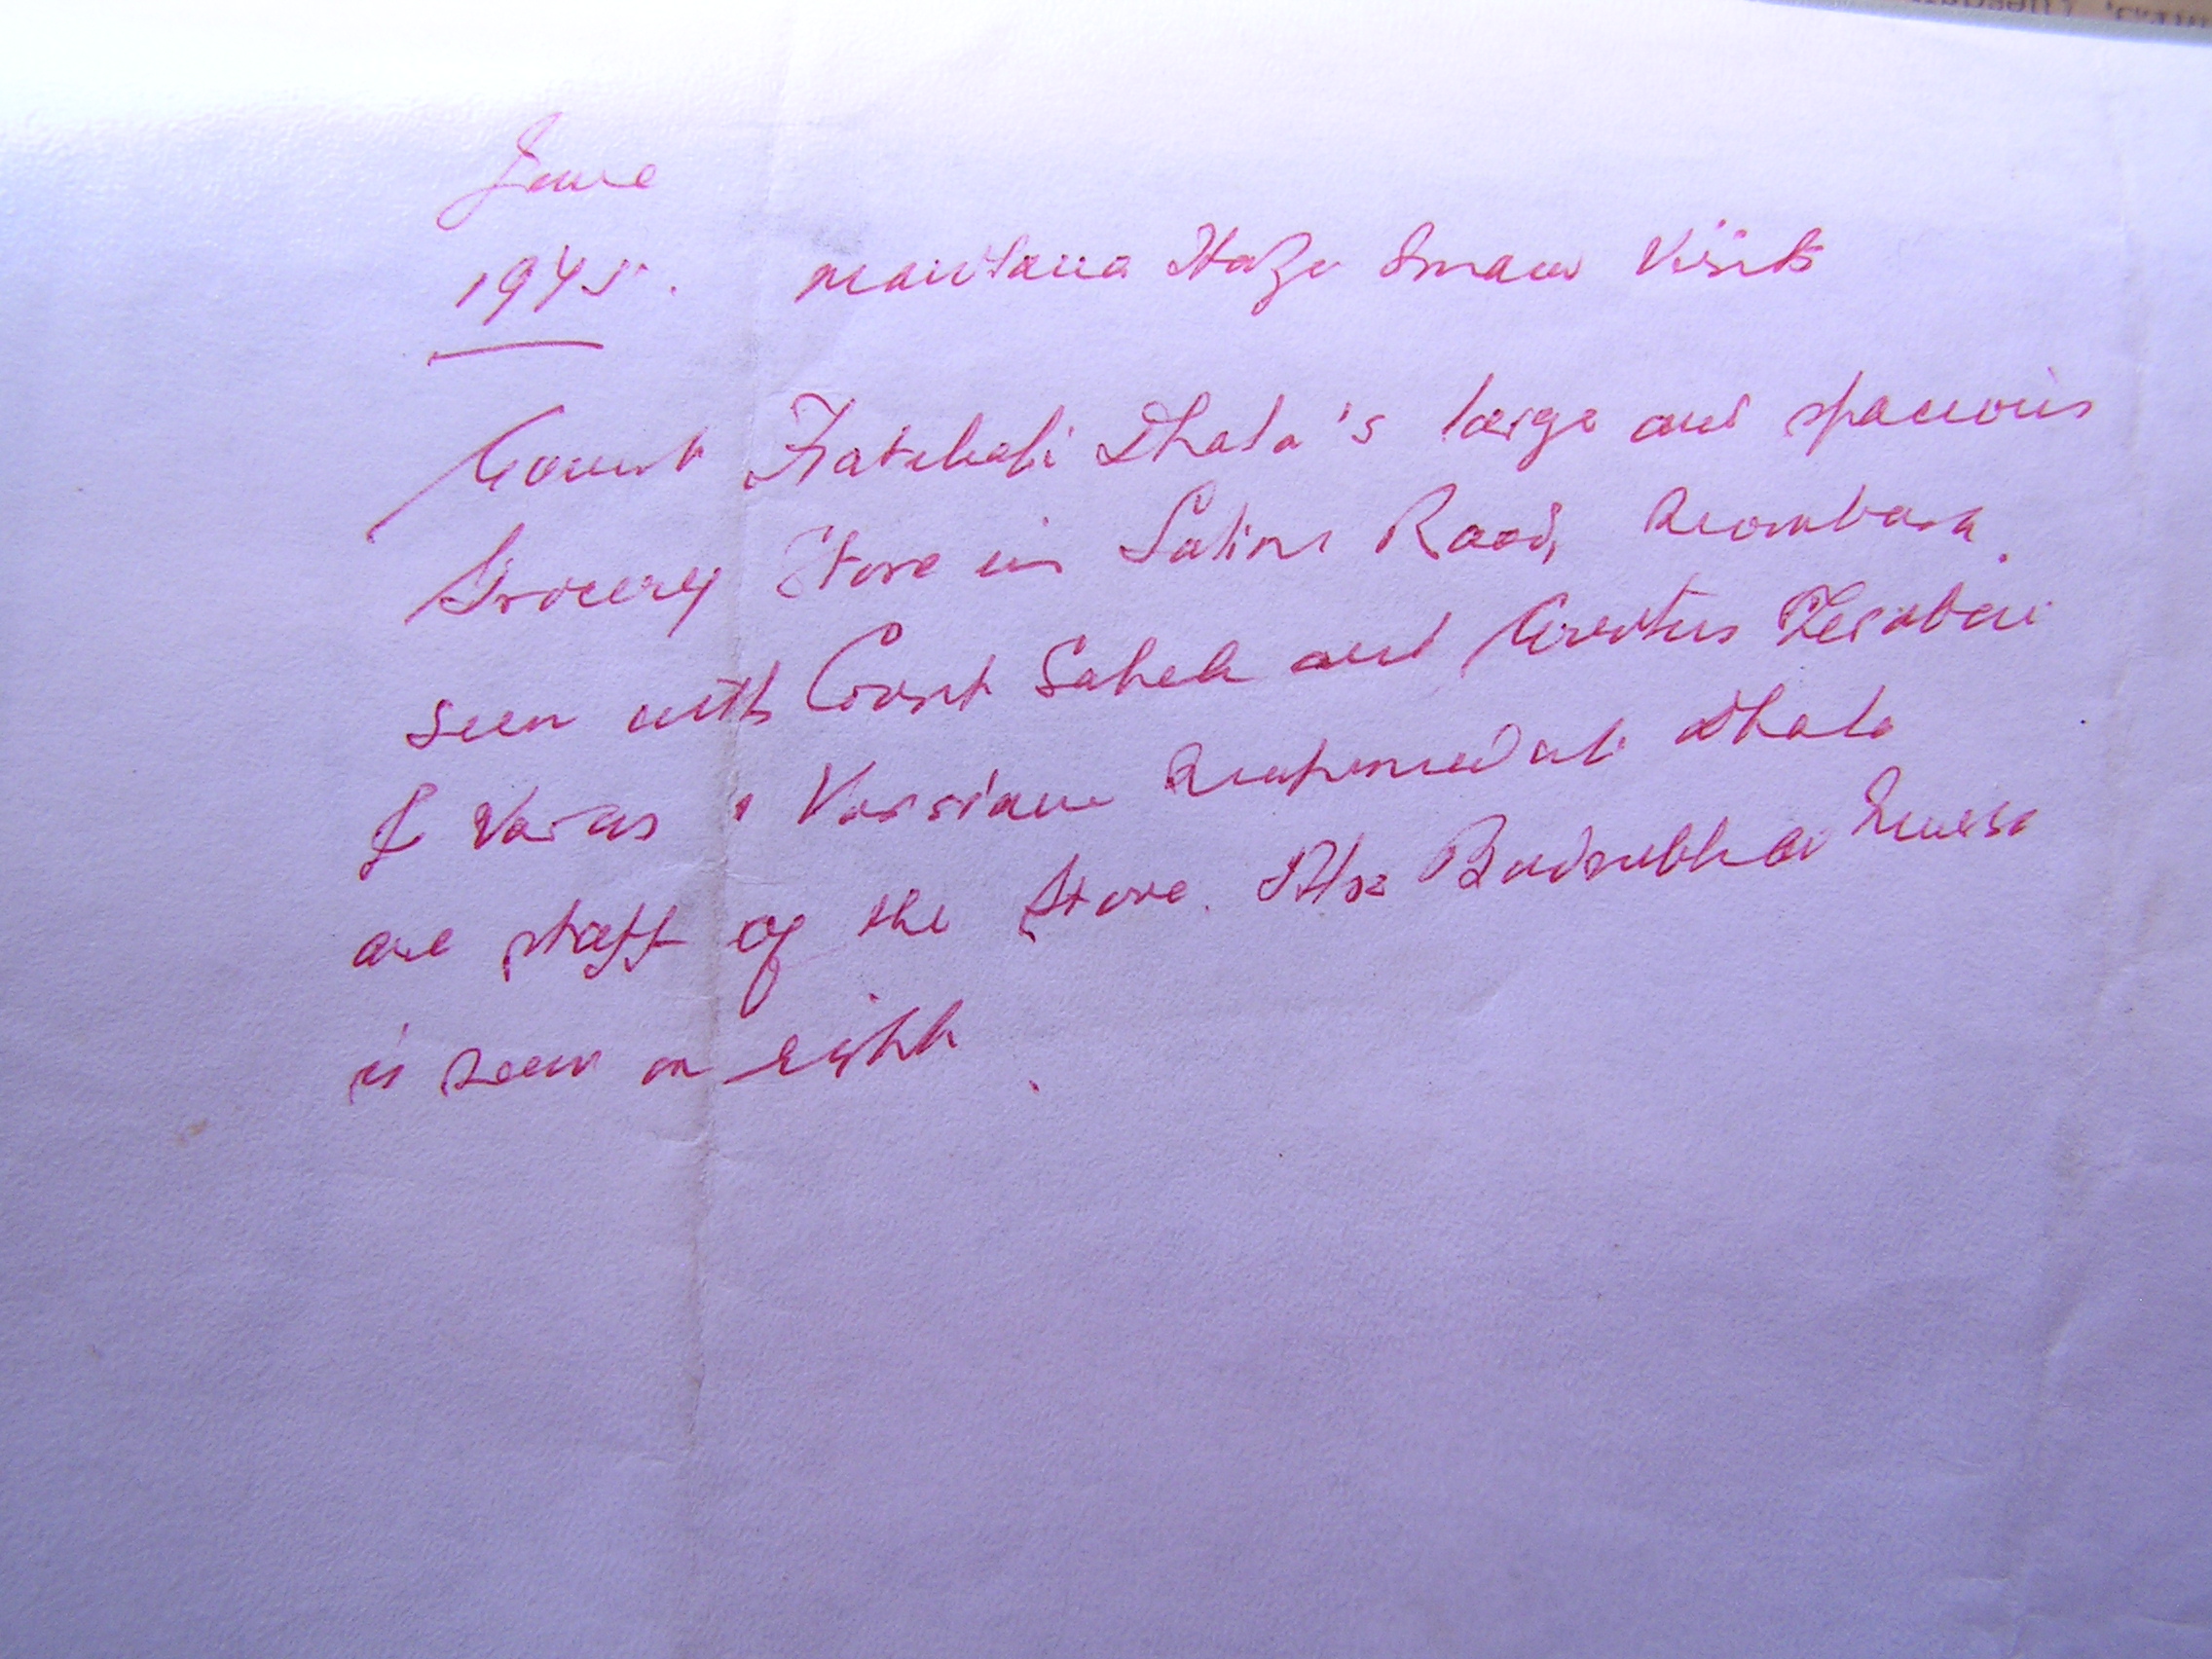 June
1945. Mawlana Hazr Imam Visits
Count Fatehali Dhala's large and spacious
Grocery Store in Salim Road, Mombasa.
Seen with Count Saheb and
& Varas Varsiani Dhala
are staff of the Store. Also Badrubhai
is seen on right.